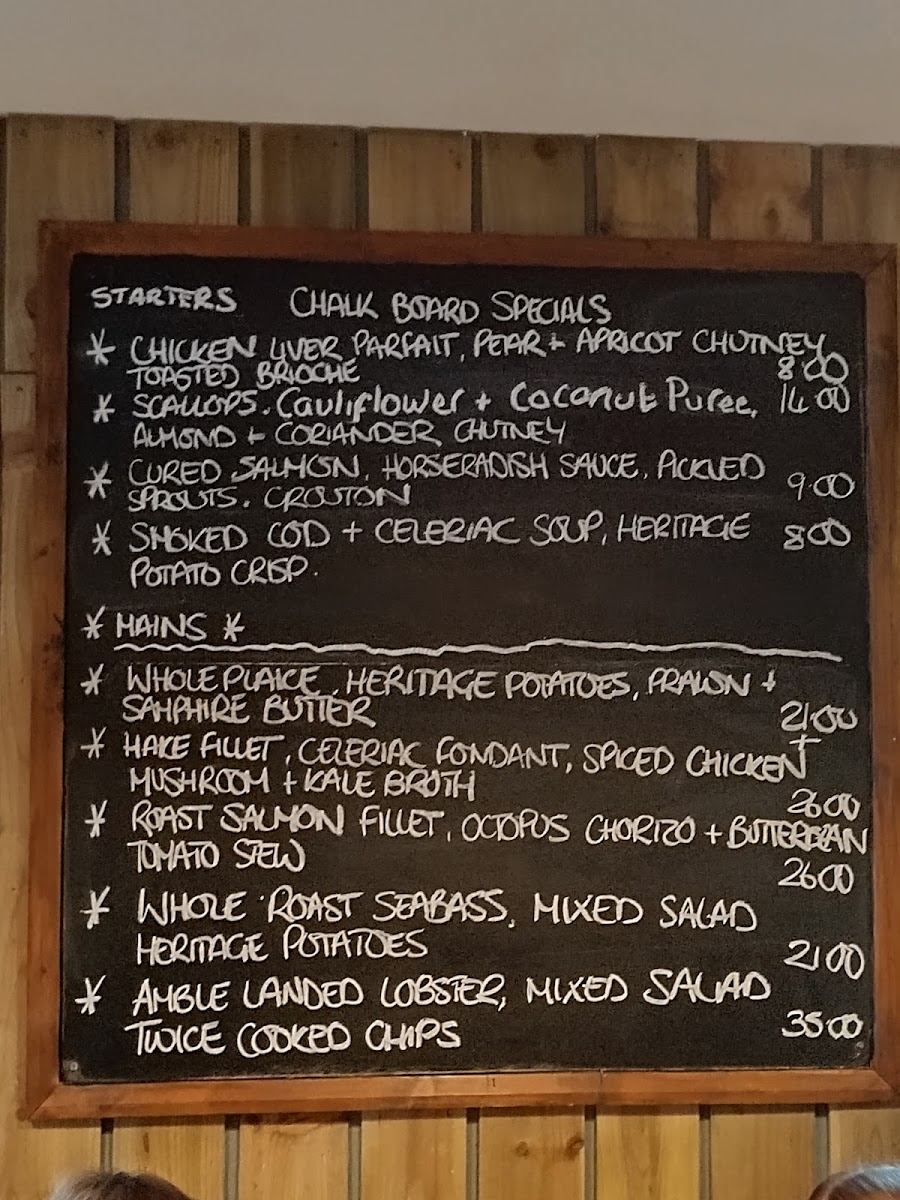 STARTERS CHALK BOARD SPECIALS
* CHICKEN LIVER PARFAIT, PEAR + APRICOT CHUTNEY
TOASTED BRIOCHE 8.00
* SCALLOPS. Cauliflower + Coconut Puree, 14.00
ALMOND + CORIANDER CHUTNEY
* CURED SALMON, HORSERADISH SAUCE, PICKLED
SPROUTS. CROUTON 9.00
* SMOKED COD + CELERIAC SOUP, HERITAGE 8.00
POTATO CRISP.
* MAINS *
* WHOLE PLAICE, HERITAGE POTATOES, PRAWN +
SAMPHIRE BUTTER 21.00
* HAKE FILLET, CELERIAC FONDANT, SPICED CHICKEN +
MUSHROOM + KALE BROTH 26.00
* ROAST SALMON FILLET, OCTOPUS CHORIZO + BUTTERBEAN
TOMATO STEW 26.00
* WHOLE ROAST SEABASS, MIXED SALAD
HERITAGE POTATOES 21.00
* AMBLE LANDED LOBSTER, MIXED SALAD
TWICE COOKED CHIPS 35.00